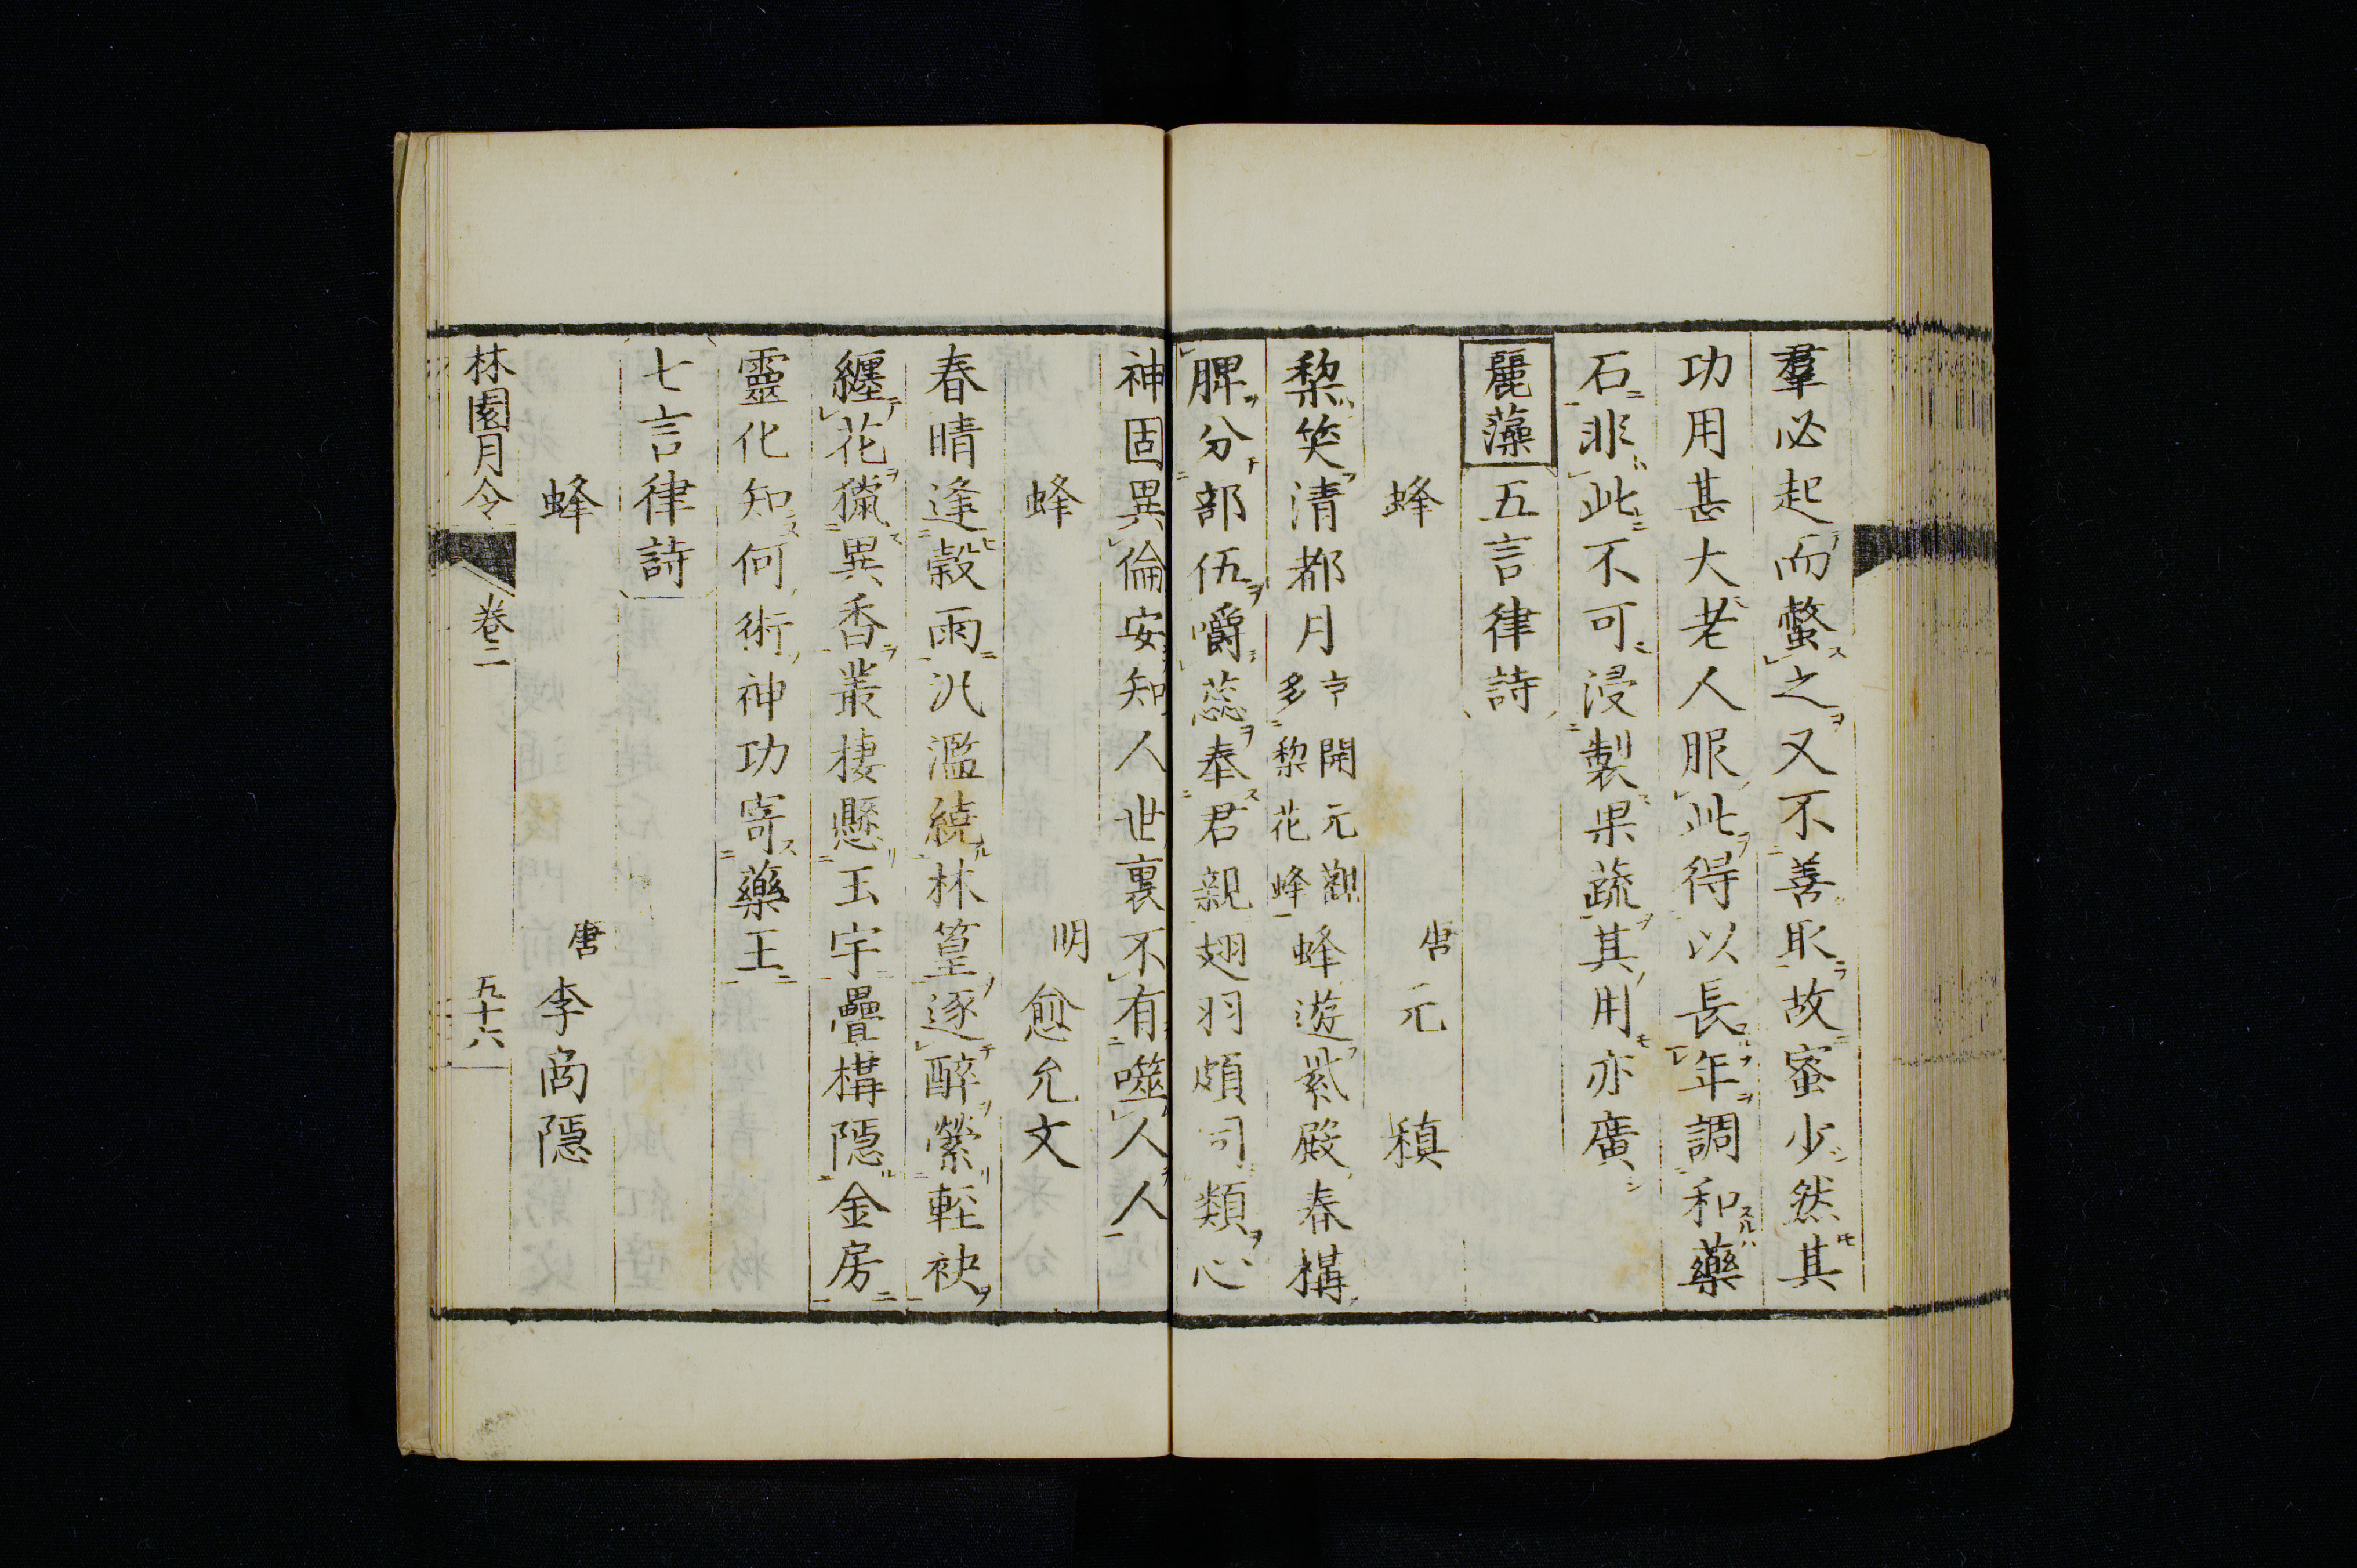 羣必起而螫之又不善取故蜜少然其
功用甚大老人服此得以長年調和藥
石非此不可浸製果蔬其用亦廣
麗藻 五言律詩
蜂 唐 元稹
梨笑清都月 京開元觀多梨花蜂 蜂遊紫殿春構
脾分部伍嚼蕊奉君親翅羽頗同類心
神固異倫安知人世裏不有噬人人
蜂 明 愈允文
春晴逢穀雨汎濫繞林篁逐醉縈輕袂
纏花獵異香叢棲懸玉宇疊構隱金房
靈化知何術神功寄藥王
七言律詩
蜂 唐 李商隱
林園月令 卷二 五十六